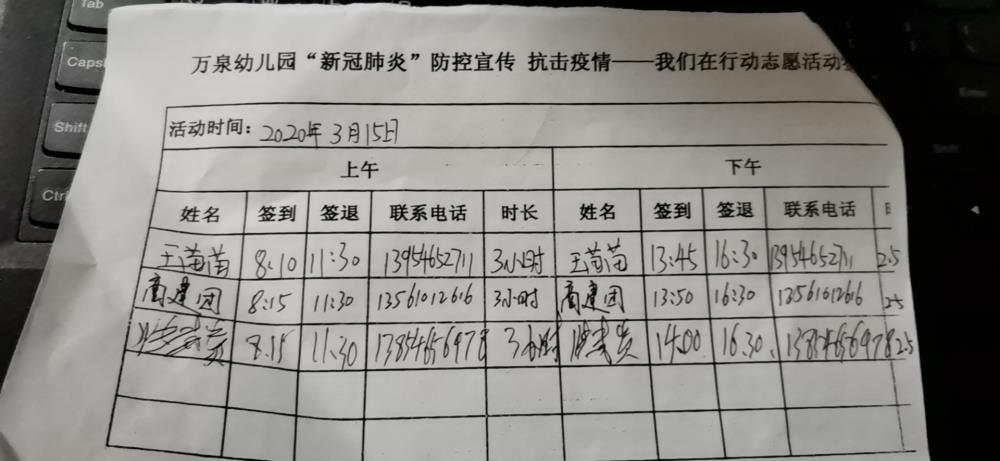 Tab
Caps
Shift
Ctrl
万泉幼儿园“新冠肺炎”防控宣传 抗击疫情——我们在行动志愿活动
活动时间：2020年3月15日
上午 下午
姓名 签到 签退 联系电话 时长 姓名 签到 签退 联系电话
王苗苗 8:10 11:30 13954652711 3小时 王苗苗 13:45 16:30 13954652711 2.5
高建团 8:15 11:30 13561012616 3小时 高建团 13:50 16:30 13561012616 2.5
8:15 11:30 13854656978 3小时 14:00 16:30 13854656978 2.5